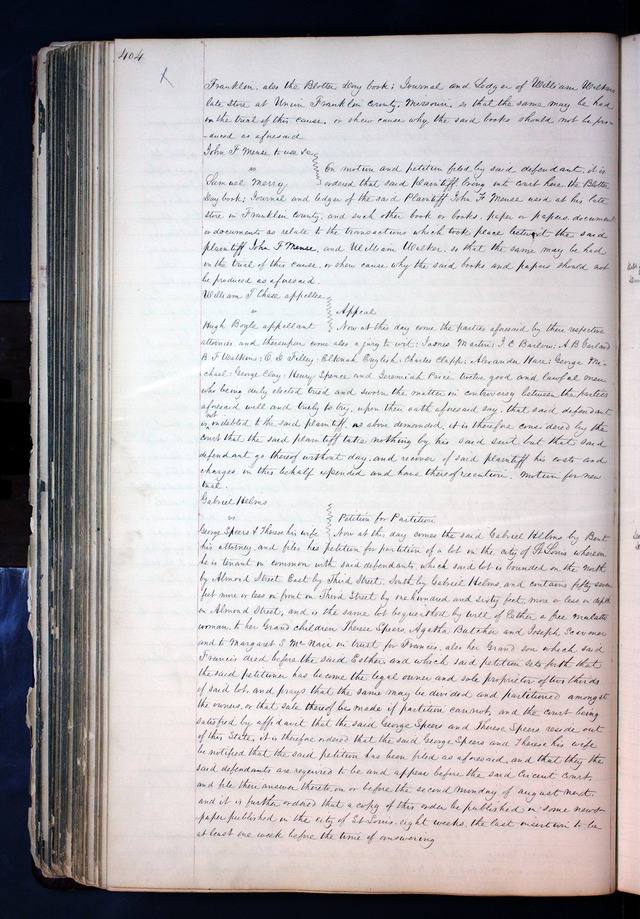 404
Franklin. also the Blotter Day book; Journal and Ledger of William Walker
late Store at Union Franklin County, Missouri. so that the same may be had
on the trial of this cause. or shew cause why the said books should not be pro-
-duced as aforesaid
John F Mense to use &c
vs
On motion and petition filed by said defendant. it is
Samuel Merry
ordered that said plaintiff bring into court here. the Blotter
Day book; Journal and ledger of the said Plaintiff John F Mense used at his late
store in Franklin County, and such other book or books. paper or papers. document
or documents as relate to the transactions which took place between the said
plaintiff John F Mense, and William Walker. so that the same may be had
on the trial of this cause. or shew cause why the said books and papers should not
be produced as aforesaid.
William T Chase appellee
vs
Appeal
Hugh Boyle appellant
Now at this day come the parties aforesaid by their respective
attornies. and thereupon come also a jury to wit: James Martin; J C Barlow; A B Garland
B F Watkins; O D Filley; Elkanah English; Charles Clapp; Alexander Hare; George Mi-
chael; George Clay; Henry Spence and Jeremiah Price twelve good and lawful men
who being duly elected tried and sworn the matter in controversy between the parties
aforesaid well and truly to try. upon their oath aforesaid say. that said defendant
not
is indebted to the said plaintiff. as above demanded, it is therefore considered by the
court that the said plaintiff take nothing by his said suit but that said
defendant go thereof without day. and recover of said plaintiff his costs and
charges in this behalf expended and have thereof execution. Motion for new
trial.
Gabriel Helms
vs
Petition for Partition
George Speers & Therese his wife
Now at this day comes the said Gabriel Helms by Bent
his attorney. and files his petition for partition of a lot in the city of St Louis whereon
he is tenant in common with said defendants. which said lot is bounded on the North
by Almond Street. East by Third Street. South by Gabriel Helms, and contains fifty seven
feet more or less in front on Third Street by one hundred and sixty feet, more or less in depth
on Almond Street, and is the same lot bequeathed by will of Esther a free mulatto
woman. to her Grand children Therese Speers, Agatha Butcher and Joseph
and to Margaret S. McNair in trust for Frances. also her Grand son which said
Francis died before the said Esther and which said petition sets forth that
the said petitioner has become the legal owner and sole proprietor of two thirds
of said lot. and prays that the same may be divided and partitioned amongst
the owners, or that sale thereof be made if partition cannot, and the court being
satisfied by affidavit that the said George Speers and Therese Speers reside out
of this State, it is therefore ordered that the said George Speers and Therese his wife
be notified that the said petition has been filed as aforesaid. and that they the
said defendants are required to be and appear before the said Circuit Court,
and file their answer thereto, on or before the second Monday of august next.
and it is further ordered that a copy of this order be published in some news-
paper published in the city of St Louis. eight weeks. the last insertion to be
at least one week before the time of answering